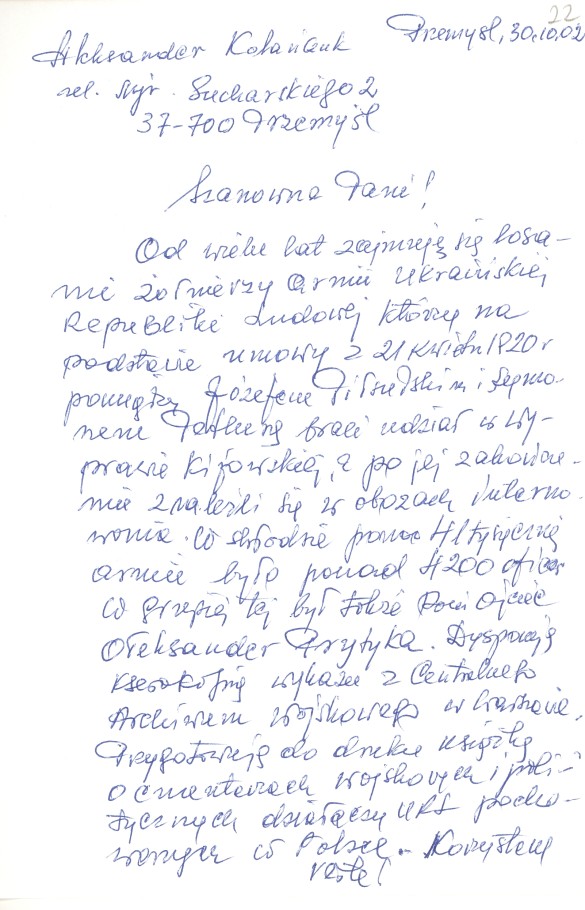 22
Przemyśl, 30.10.02
Aleksander Kolańczuk
ul. Mjr. Sucharskiego 2
37-700 Przemyśl
Szanowna Pani!
Od wielu lat zajmuję się losa-
mi żołnierzy Armii Ukraińskiej
Republiki Ludowej którzy na
podstawie umowy z 21 kwietn 1920 r
pomiędzy Józefem Piłsudskim i Symo-
nem Petlurą brali udział w wy-
prawie kijowskiej, a po jej zakończe-
niu znaleźli się w obozach interno-
wania. W składzie ponad 41 tysięcznej
armii było ponad 4200 oficer
W grupie tej był także Pani Ojciec
Ołeksander Prytyka. Dysponuję
kserokopią wykazu z Centralnego
Archiwum Wojskowego w Warszawie.
Przygotowuję do druku książkę
o cmentarzach wojskowych i poli-
tycznych działaczy URL pocho-
wanych w Polsce.